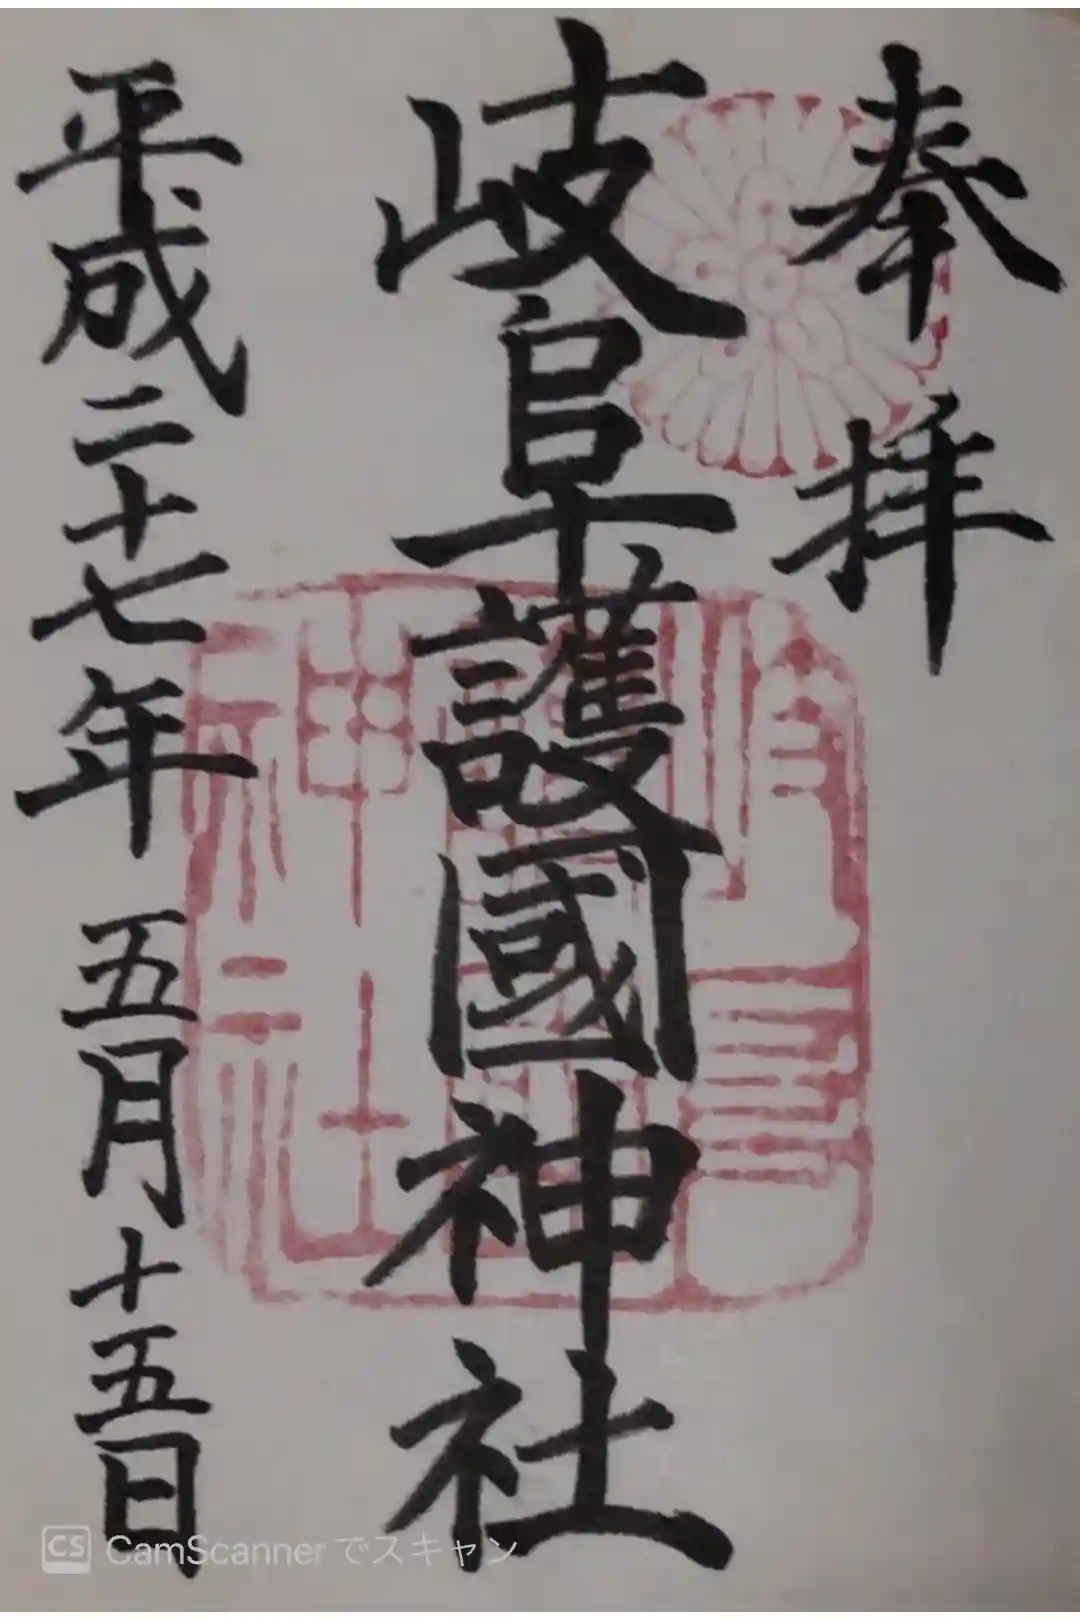 奉拝
岐阜護國神社
平成二十七年五月十五日
岐阜護國神社
CS CamScannerでスキャン